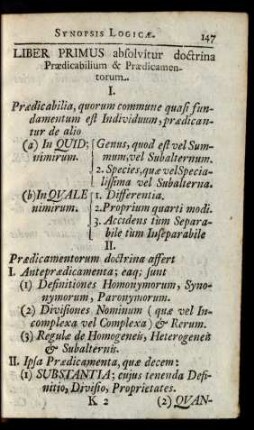 SYNOPSIS LOGICÆ. 147
LIBER PRIMUS abſolvitur doctrina
Prædicabilium & Prædicamen-
torum.
I.
Prædicabilia, quorum commune quaſi fun-
damentum eſt Individuum, prædican-
tur de alio
(a) In QUID; { Genus, quod eſt vel Sum-
nimirum. mum, vel Subalternum.
2. Species, quæ vel Specia-
liſſima vel Subalterna.
(b) In QVALE { 1. Differentia.
nimirum. 2. Proprium quarti modi.
3. Accidens tùm Separa-
bile tùm Inſeparabile
II.
Prædicamentorum doctrina affert
I. Anteprædicamenta; eaq; ſunt
(1) Definitiones Homonymorum, Syno-
nymorum, Paronymorum.
(2) Diviſiones Nominum (quæ vel In-
complexa vel Complexa) & Rerum.
(3) Regulæ de Homogeneis, Heterogeneis
& Subalternis.
II. Ipſa Prædicamenta, quæ decem:
(1) SUBSTANTIA; cujus tenenda Defi-
nitio, Diviſio, Proprietates.
K 2 (2) QVAN-